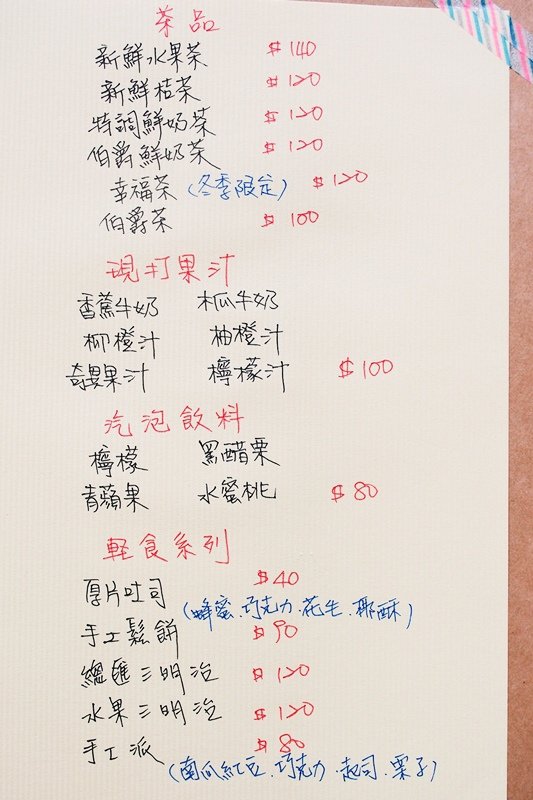 茶品
新鮮水果茶 $140
新鮮桔茶 $120
特調鮮奶茶 $120
伯爵鮮奶茶 $120
幸福茶(冬季限定) $120
伯爵茶 $100
現打果汁
香蕉牛奶 木瓜牛奶
柳橙汁 柚橙汁
奇異果汁 檸檬汁 $100
汽泡飲料
檸檬 黑醋栗
青蘋果 水蜜桃 $80
軽食系列
厚片吐司 $40
(蜂蜜.巧克力.花生.椰酥)
手工鬆餅 $90
總匯三明治 $120
水果三明治 $120
手工派 $80
(南瓜紅豆.巧克力.起司.栗子)